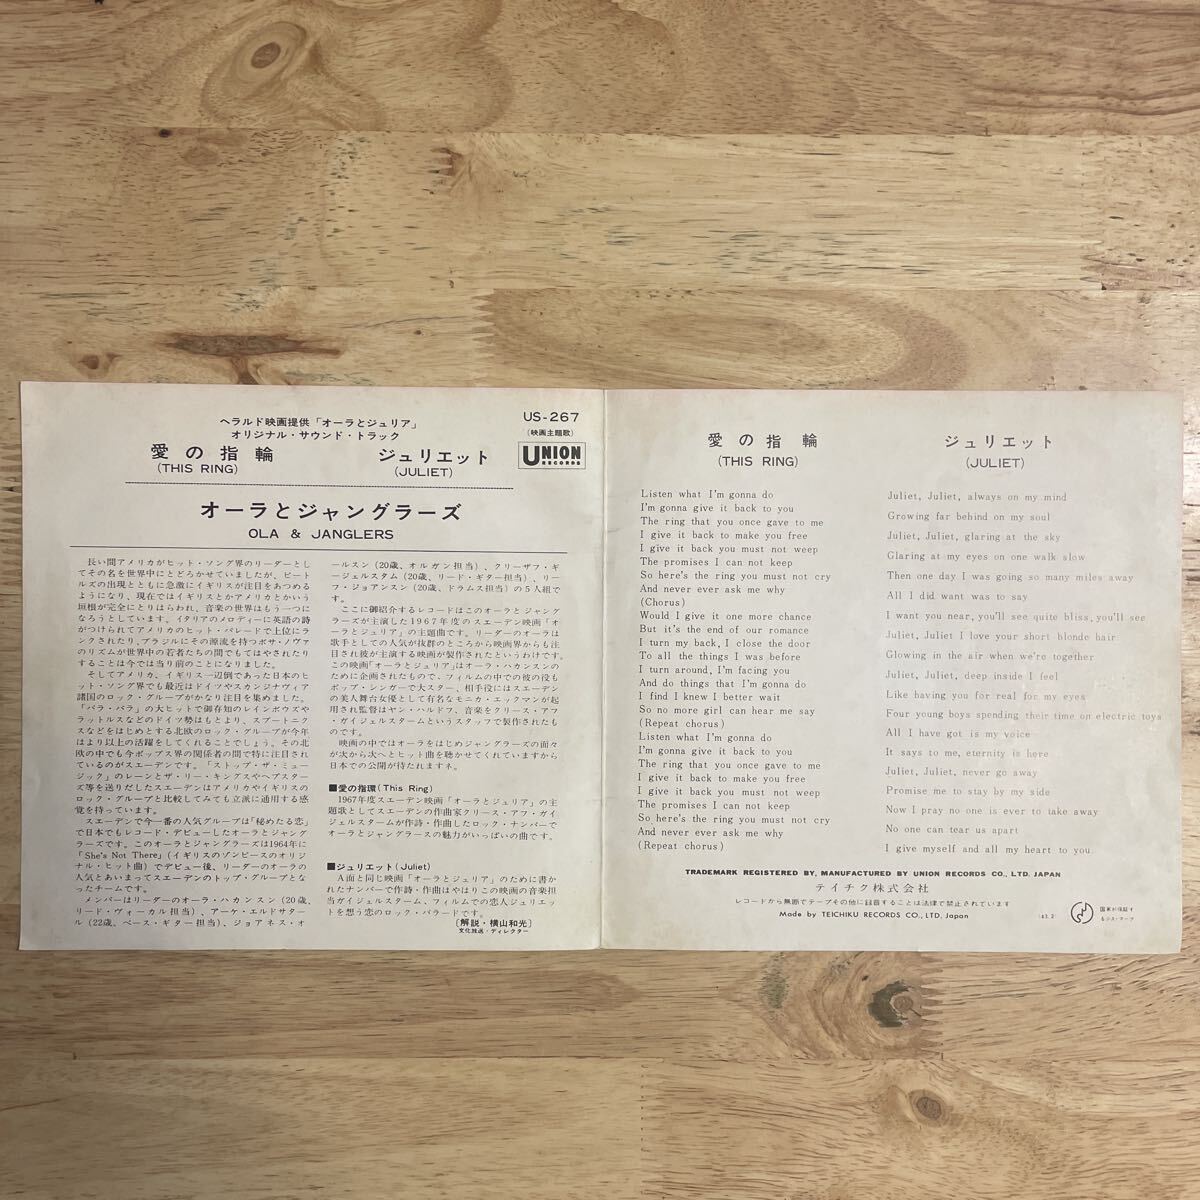 ヘラルド映画提供「オーラとジュリア」
オリジナル・サウンド・トラック
愛の指輪
(THIS RING)
ジュリエット
(JULIET)
US-267
(映画主題歌)
UNION
RECORDS
オーラとジャングラーズ
OLA & JANGLERS
長い間アメリカがヒット・ソング界のリーダーとし
てその名を世界中にとどろかせていましたが、ビート
ルズの出現とともに急激にイギリスが注目をあつめる
ようになり、現在ではイギリスとかアメリカとかいう
垣根が完全にとりはらわれ、音楽の世界はもう一つに
なろうとしています。イタリアのメロディーに英語の詩
がつけられてアメリカのヒット・パレードで上位にラ
ンクされたり、ブラジルにその源流を持つボサ・ノヴァ
のリズムが世界中の若者たちの間でもてはやされたり
することは今では当り前のことになりました。
そしてアメリカ、イギリス一辺倒であった日本のヒ
ット・ソング界でも最近はドイツやスカンジナヴィア
諸国のロック・グループがかなり注目を集めました。
「バラ・バラ」の大ヒットで御存知のレインボウズや
ラットルズなどのドイツ勢はもとより、スプートニク
スなどをはじめとする北欧のロック・グループが今年
はより以上の活躍をしてくれることでしょう。その北
欧の中でも今ポップス界の関係者の間で特に注目され
ているのがスエーデンです。「ストップ・ザ・ミュー
ジック」のレーンとザ・リー・キングスやヘプスター
ズ等を送りだしたスエーデンはアメリカやイギリスの
ロック・グループと比較してみても立派に通用する感
覚を持っています。
スエーデンで今一番の人気グループは「秘めたる恋」
で日本でもレコード・デビューしたオーラとジャング
ラーズです。このオーラとジャングラーズは1964年に
「She's Not There」(イギリスのゾンビーズのオリジ
ナル・ヒット曲)でデビュー後、リーダーのオーラの
人気とあいまってスエーデンのトップ・グループとな
ったチームです。
メンバーはリーダーのオーラ・ハカンスン(20歳、
リード・ヴォーカル担当)、アーケ・エルドサター
ル(22歳、ベース・ギター担当)、ジョアネス・オ
ールスン(20歳、オルガン担当)、クリーザフ・ギ
ージェルスタム(20歳、リード・ギター担当)、リー
フ・ジョアンスン(20歳、ドラムス担当)の5人組で
す。
ここに御紹介するレコードはこのオーラとジャング
ラーズが主演した1967年度のスエーデン映画「オ
ーラとジュリア」の主題曲です。リーダーのオーラは
歌手としての人気が抜群のところから映画界からも注
目され彼が主演する映画が製作されたというわけです。
この映画「オーラとジュリア」はオーラ・ハカンスンの
ために企画されたもので、フィルムの中での彼の役も
ポップ・シンガーで大スター、相手役にはスエーデン
の美人舞台女優として有名なモニカ・エックマンが起
用され監督はヤン・ハルドフ、音楽をクリース・アフ
・ガイジェルスタームというスタッフで製作されたも
のです。
映画の中ではオーラをはじめジャングラーズの面々
が次から次へとヒット曲を聴かせてくれていますから
日本での公開が待たれますネ。
■愛の指環(This Ring)
1967年度スエーデン映画「オーラとジュリア」の主
題歌としてスエーデンの作曲家クリース・アフ・ガイ
ジェルスタームが作詩・作曲したロック・ナンバーで
オーラとジャングラースの魅力がいっぱいの曲です。
■ジュリエット(Juliet)
A面と同じ映画「オーラとジュリア」のために書か
れたナンバーで作詩・作曲はやはりこの映画の音楽担
当ガイジェルスターム、フィルムでの恋人ジュリエッ
トを想う恋のロック・バラードです。
〔解説・横山和光〕
文化放送・ディレクター
愛の指輪
(THIS RING)
Listen what I'm gonna do
I'm gonna give it back to you
The ring that you once gave to me
I give it back to make you free
I give it back you must not weep
The promises I can not keep
So here's the ring you must not cry
And never ever ask me why
(Chorus)
Would I give it one more chance
But it's the end of our romance
I turn my back, I close the door
To all the things I was before
I turn around, I'm facing you
And do things that I'm gonna do
I find I knew I better wait
So no more girl can hear me say
(Repeat chorus)
Listen what I'm gonna do
I'm gonna give it back to you
The ring that you once gave to me
I give it back to make you free
I give it back you must not weep
The promises I can not keep
So here's the ring you must not cry
And never ever ask me why
(Repeat chorus)
ジュリエット
(JULIET)
Juliet, Juliet, always on my mind
Growing far behind on my soul
Juliet, Juliet, glaring at the sky
Glaring at my eyes on one walk slow
Then one day I was going so many miles away
All I did want was to say
I want you near, you'll see quite bliss, you'll see
Juliet, Juliet I love your short blonde hair
Glowing in the air when we're together
Juliet, Juliet, deep inside I feel
Like having you for real for my eyes
Four young boys spending their time on electric toys
All I have got is my voice
It says to me, eternity is here
Juliet, Juliet, never go away
Promise me to stay by my side
Now I pray no one is ever to take away
No one can tear us apart
I give myself and all my heart to you
TRADEMARK REGISTERED BY, MANUFACTURED BY UNION RECORDS CO., LTD. JAPAN
テイチク株式会社
レコードから無断でテープその他に録音することは法律で禁止されています
Made by TEICHIKU RECORDS CO., LTD, Japan
(43. 2)
国家が保証す
るJIS・マーク